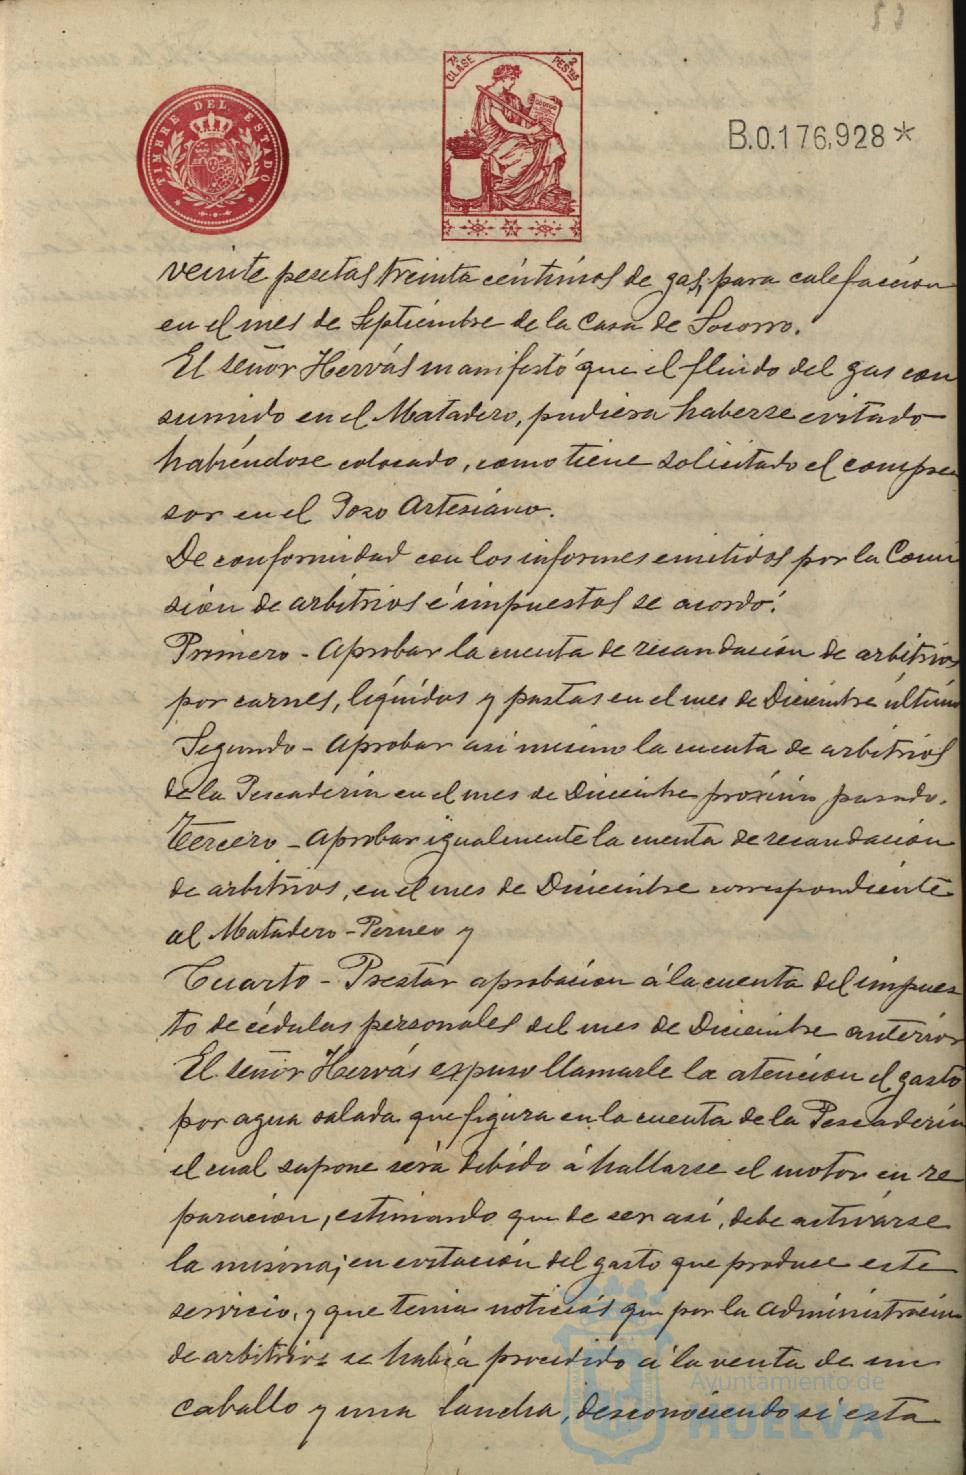 53
TIMBRE DEL ESTADO
7ª CLASE 2 PESTAS
B.0.176,928*
veinte pesetas treinta céntimos de gas, para calefacción
en el mes de Septiembre de la Casa de Socorro.
El señor Hervás manifestó que el fluido del gas con
sumido en el Matadero, pudiera haberse evitado
habiéndose colocado, como tiene solicitado el compre
sor en el Pozo Artesiano.
De conformidad con los informes emitidos por la Comi
sión de arbitrios é impuestos se acordó:
Primero - Aprobar la cuenta de recaudación de arbitrios
por carnes, líquidos y pastas en el mes de Diciembre último
Segundo - Aprobar asi mismo la cuenta de arbitrios
de la Pescadería en el mes de Diciembre próximo pasado.
Tercero - Aprobar igualmente la cuenta de recaudación
de arbitrios, en el mes de Diciembre correspondiente
al Matadero - Perneo y
Cuarto - Prestar aprobación á la cuenta del impues
to de cédulas personales del mes de Diciembre anterior
El señor Hervás expuso llamarle la atención el gasto
por agua salada que figura en la cuenta de la Pescadería
el cual supone será debido á hallarse el motor en re
paración, estimando que de ser así, debe activarse
la misma; en evitación del gasto que produce este
servicio, y que tenía noticias que por la Administración
de arbitrios se había procedido á la venta de un
caballo y una lancha, desconociendo si esta
Ayuntamiento de
HUELVA